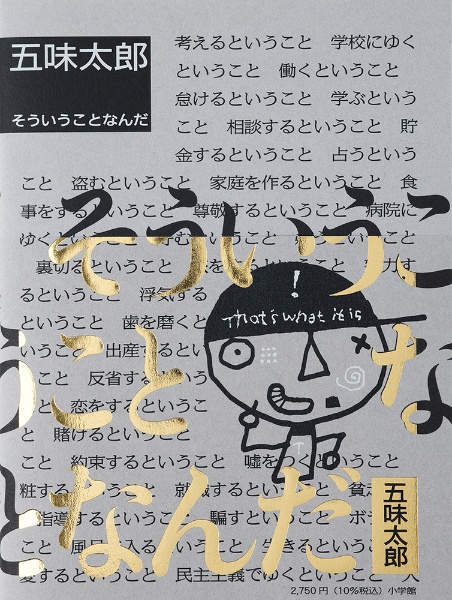 五味太郎
そういうことなんだ
考えるということ　学校にゆく
ということ　働くということ
怠けるということ　学ぶという
こと　相談するということ　貯
金するということ　占うという
こと　盗むということ　家庭を作るということ　食
事をするということ　尊敬するということ　病院に
ゆくということ
裏切るということ
るということ　浮気する
ということ　歯を磨くと
いうこと　出産するとい
うこと　反省するという
こと　恋をするというこ
と　賭けるということ
こと　約束するということ　嘘をつくということ
粧するということ　就職するということ
指導するということ　騙すということ
こと　風呂に入るということ　生きるということ
愛するということ　民主主義でゆくということ　人
そういうこ
うこと　な
と　なんだ
!
That's what it is
T
五味太郎
2,750円（10%税込）小学館